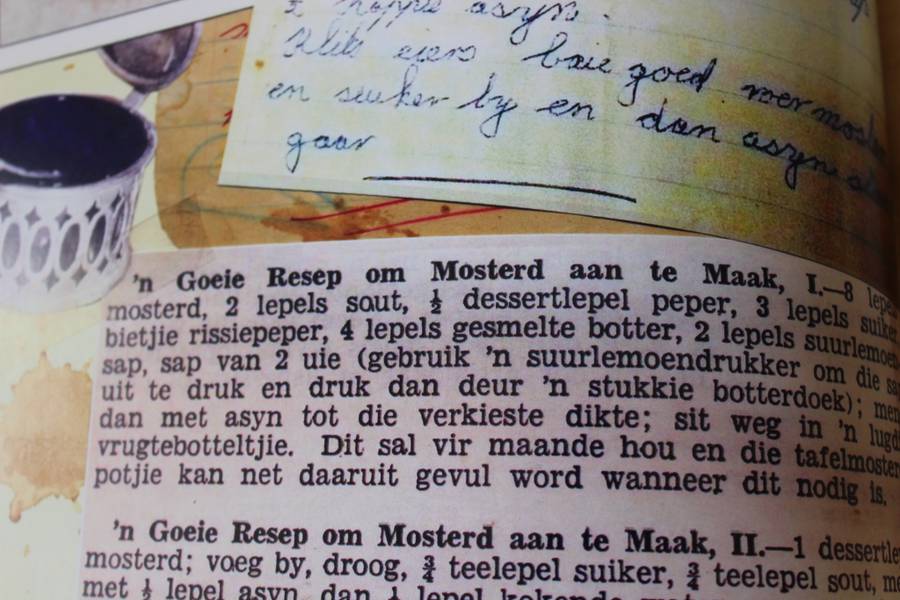 2 koppie asyn.
Klits eiers baie goed roer mos
en suiker by en dan asyn
gaar
'n Goeie Resep om Mosterd aan te Maak, I.—8 lepe
mosterd, 2 lepels sout, ½ dessertlepel peper, 3 lepels suike
bietjie rissiepeper, 4 lepels gesmelte botter, 2 lepels suurlemoen
sap, sap van 2 uie (gebruik 'n suurlemoendrukker om die sa
uit te druk en druk dan deur 'n stukkie botterdoek); men
dan met asyn tot die verkieste dikte; sit weg in 'n lugd
vrugtebotteltjie. Dit sal vir maande hou en die tafelmoster
potjie kan net daaruit gevul word wanneer dit nodig is.
'n Goeie Resep om Mosterd aan te Maak, II.—1 dessertle
mosterd; voeg by, droog, ¾ teelepel suiker, ¾ teelepel sout, me
met ½ lepel asyn, dan lepel kokende